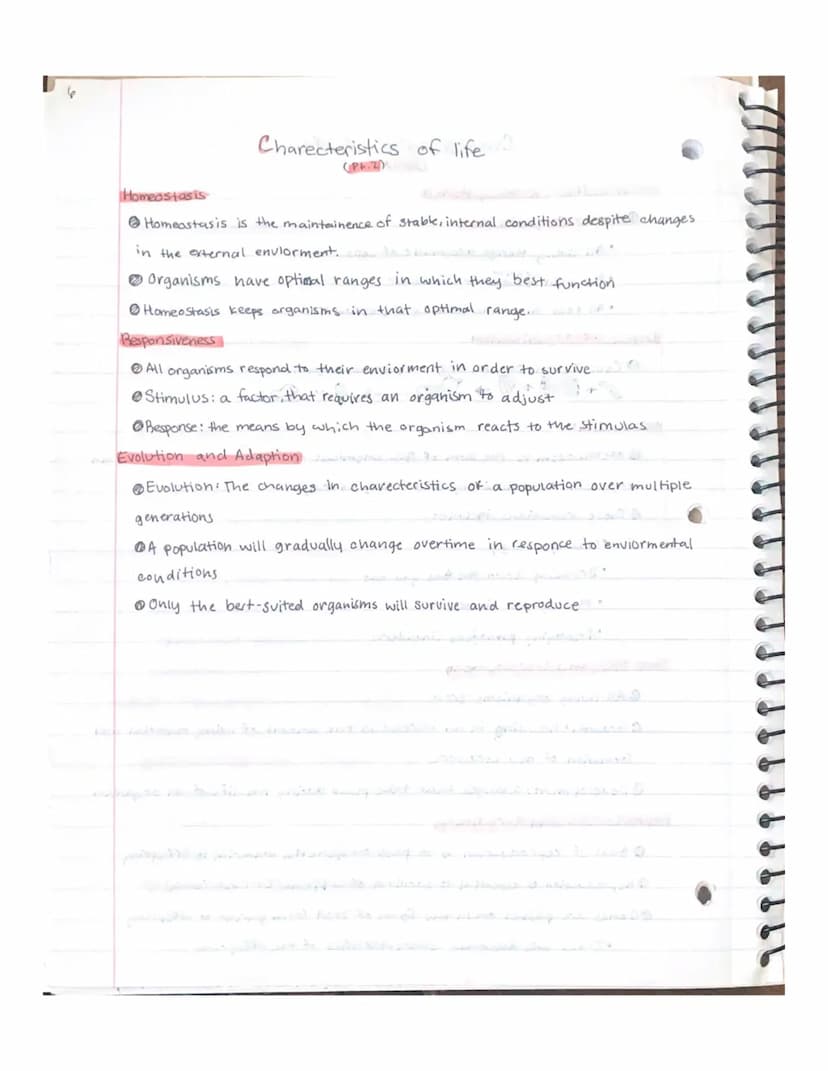 6
Charecteristics of life
(Pt.2)
Homeostasis
Homeostasis is the maintainence of stable, internal conditions despite changes
in the external enviorment.
Organisms have optimal ranges in which they best function
Homeostasis keeps organisms in that optimal range.
Responsiveness
All organisms respond to their enviorment in order to survive
Stimulus: a factor, that requires an organism to adjust
Response: the means by which the organism reacts to the stimulas
Evolution and Adaption
Evolution: The changes in charecteristics of a population over multiple
generations
A population will gradually change overtime in responce to enviormental
conditions
Only the best-suited organisms will survive and reproduce